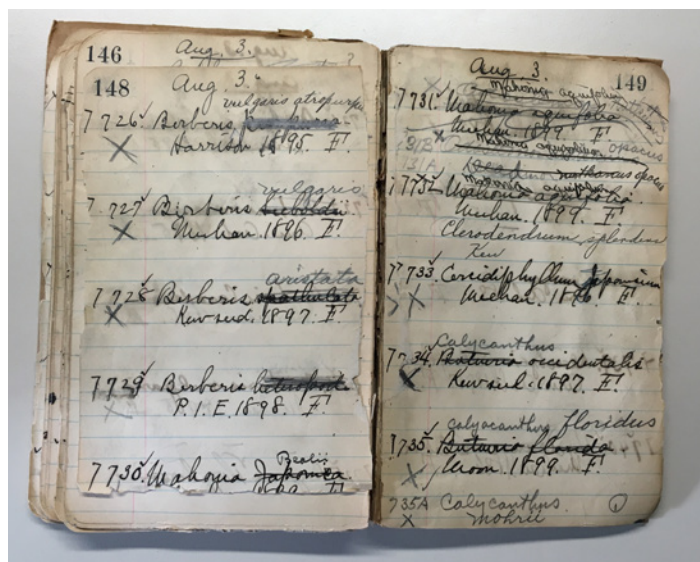 146 Aug. 3.
148 Aug. 3.
vulgaris atropurpu
7726. Berberis
Harrison 1895. F.
X
vulgaris
7727 Berberis Sieboldii
Meehan. 1896. F.
X
aristata
7728 Berberis spathulata
Kew seed. 1897. F.
X
7729 Berberis heteropoda
P. I. E. 1898. F.
X
Bealii
7730. Mahonia Japonica
Aug. 3. 149
Mahonia aquifolium
7731. Mahonia aquifolia
Meehan. 1899. F.
X
Mahonia aquifolium opacus
731A
Mahonia aquifolium
7732 Mahonia aquifolia
Meehan. 1899. F.
Clerodendrum splendens
Kew
7733. Cercidiphyllum Japonicum
Meehan. 1896 F.
X X
Calycanthus
7734. Butneria occidentalis
Kew seed. 1897. F.
X
calycanthus floridus
7735. Butneria florida
Moon. 1899. F.
X
735A Calycanthus 1
X Mohrii